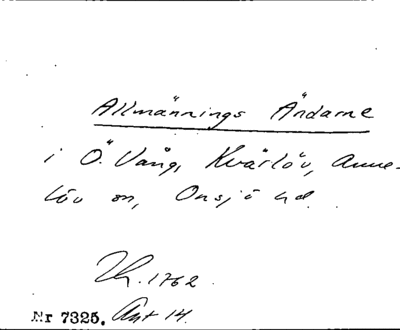 Allmännings Ändarne
i Ö. Vång, Kvärlöv, Anne-
löv sn, Onsjö hd.
Lh. 1762.
Nr 7325. Akt 14.